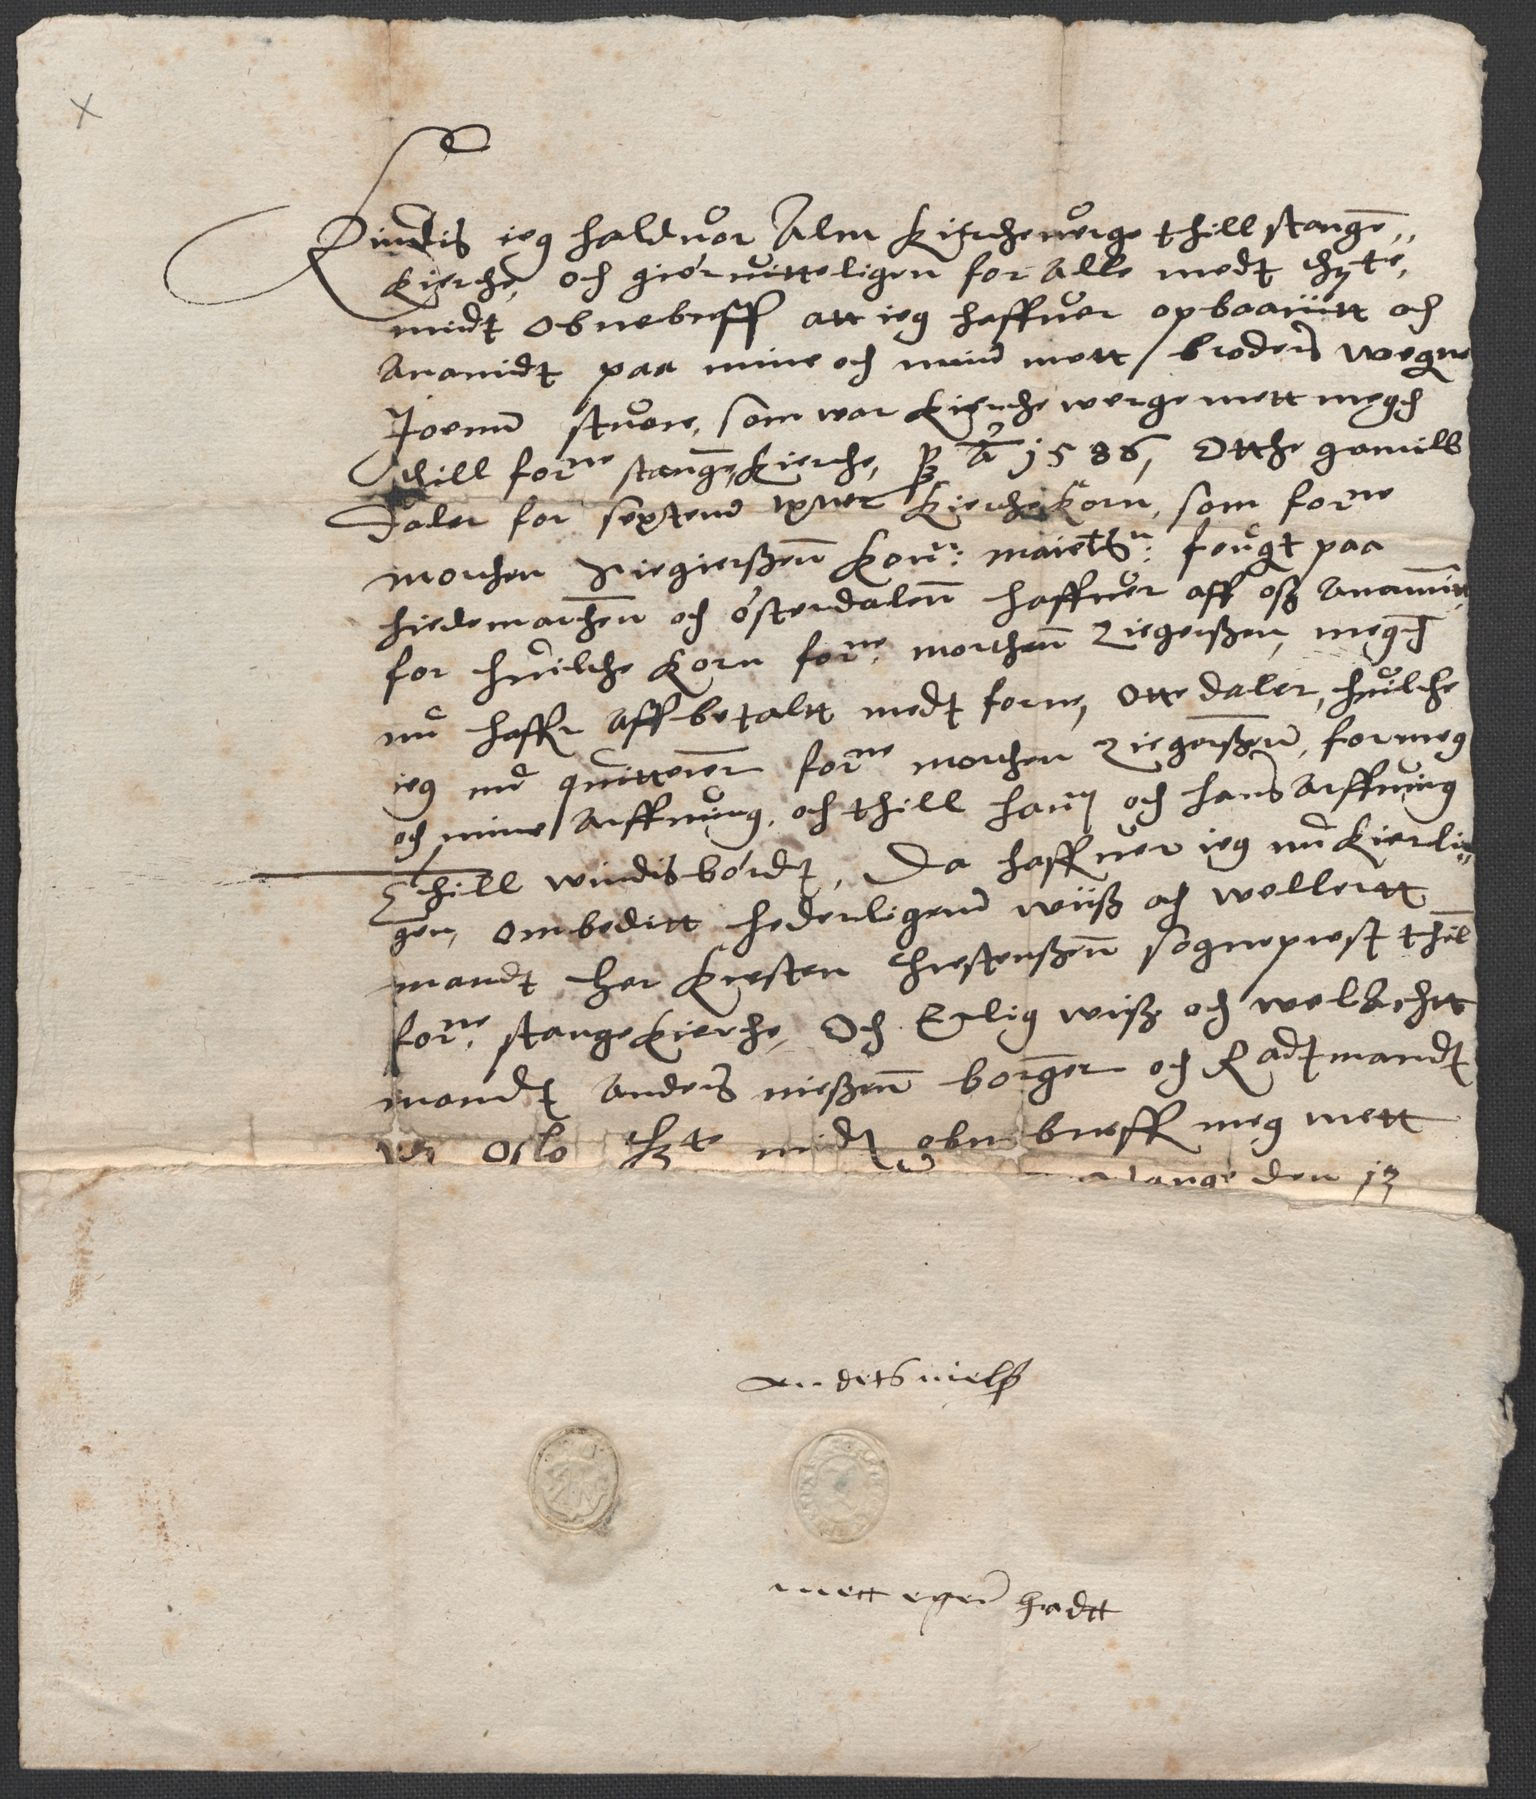 Kindis ieg halduor Alm kirchenerge thill stange„
kierche, och giør vitteligen for Alle medt thzte,
midt Obnebreff att ieg haffuer opbaaritt och
Anamidt paa mine och minn mett broders wegne
Joenn stuore, som war kierche werge mett megh
thill forne stange kierche, pro Ao 1586, Otthe gamill
Daler for sextenn tønner kierche korn, som forne
morthen Ziegierßenn kon: maietts: fougt paa
hiedemarchen och østerdalenn haffuer aff oß Anammitt
for huilche korn forne morthenn Ziegerßen, megh
nu haffr Aff betaltt medt forne, Otte daler, huilche
ieg nu quitterer forne morthen Ziegerßenn, for meg
och mine Arffuing, och thill hanß och hans Arffuing
Thill windisbørdt, Da haffuer ieg nu kierli„
gen, ombeditt hederligenn wiiß och wellertt
mandt her kresten chrestenßenn sogneprest thill
forne stange kierche, Och Erlig wiiß och wel Achtt
mandt Anders nielßenn borger och Radtmandt
vdi Oslo thzte midt obne breff meg mett
stange den 13
anders nielß
mett egenn handt